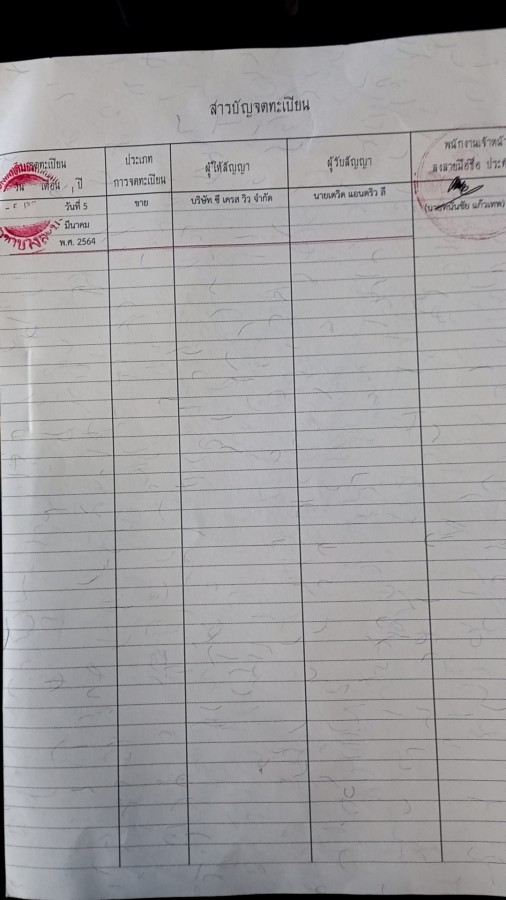 สารบัญจดทะเบียน
จดทะเบียน
วัน เดือน , ปี
ประเภท
การจดทะเบียน
ผู้ให้สัญญา
ผู้รับสัญญา
พนักงานเจ้าหน้า
ลงลายมือชื่อ ประทั
วันที่ 5
มีนาคม
พ.ศ. 2564
ขาย
บริษัท ซี เครส วิว จำกัด
นายเดวิด แอนดริว ลี
แก้วเทพ)